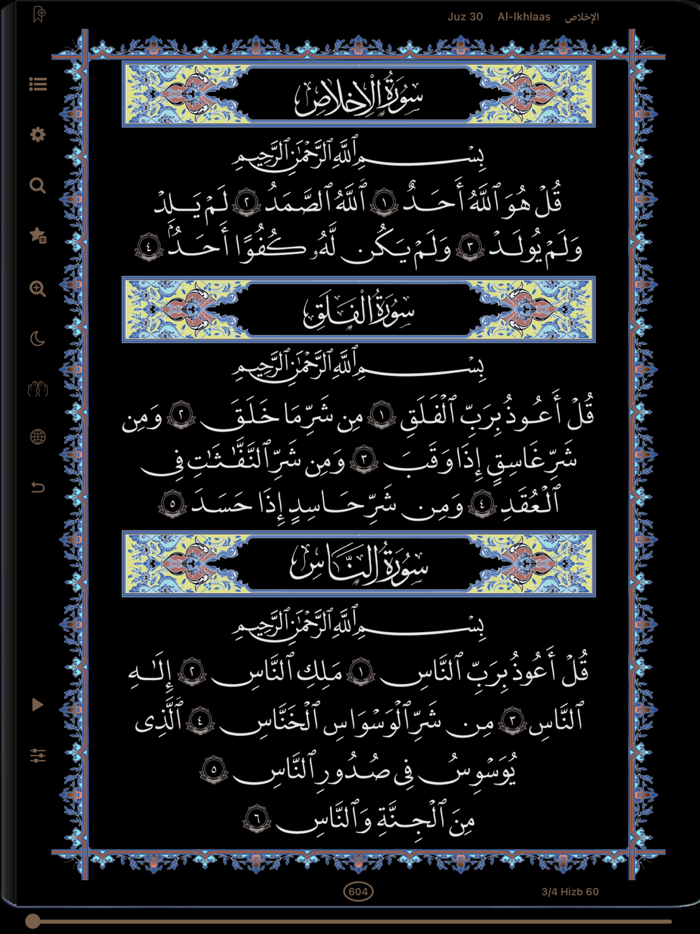 Juz 30 Al-Ikhlaas الإخلاص
سُورَةُ الْإِخْلَاصِ
بِسْمِ ٱللَّهِ ٱلرَّحْمَٰنِ ٱلرَّحِيمِ
قُلْ هُوَ ٱللَّهُ أَحَدٌ ١ ٱللَّهُ ٱلصَّمَدُ ٢ لَمْ يَلِدْ
وَلَمْ يُولَدْ ٣ وَلَمْ يَكُن لَّهُۥ كُفُوًا أَحَدٌۢ ٤
سُورَةُ الْفَلَقِ
بِسْمِ ٱللَّهِ ٱلرَّحْمَٰنِ ٱلرَّحِيمِ
قُلْ أَعُوذُ بِرَبِّ ٱلْفَلَقِ ١ مِن شَرِّ مَا خَلَقَ ٢ وَمِن
شَرِّ غَاسِقٍ إِذَا وَقَبَ ٣ وَمِن شَرِّ ٱلنَّفَّٰثَٰتِ فِى
ٱلْعُقَدِ ٤ وَمِن شَرِّ حَاسِدٍ إِذَا حَسَدَ ٥
سُورَةُ النَّاسِ
بِسْمِ ٱللَّهِ ٱلرَّحْمَٰنِ ٱلرَّحِيمِ
قُلْ أَعُوذُ بِرَبِّ ٱلنَّاسِ ١ مَلِكِ ٱلنَّاسِ ٢ إِلَٰهِ
ٱلنَّاسِ ٣ مِن شَرِّ ٱلْوَسْوَاسِ ٱلْخَنَّاسِ ٤ ٱلَّذِى
يُوَسْوِسُ فِى صُدُورِ ٱلنَّاسِ ٥
مِنَ ٱلْجِنَّةِ وَٱلنَّاسِ ٦
604 3/4 Hizb 60